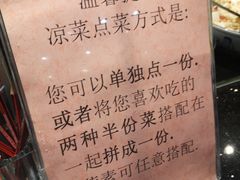 温馨提
凉菜点菜方式是:
您可以单独点一份.
或者将您喜欢吃的
两种半份菜搭配在
一起拼成一份.
荤素可任意搭配.